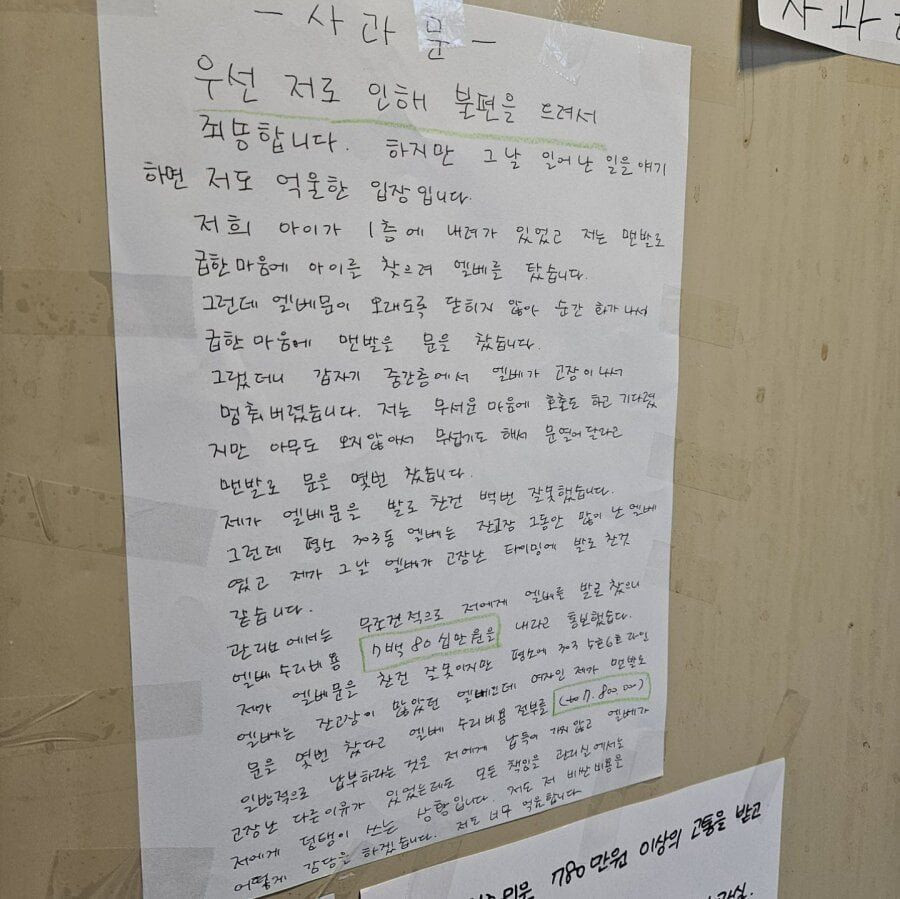 - 사 과 문 -
우선 저로 인해 불편을 드려서
죄송합니다. 하지만 그날 일어난 일을 얘기
하면 저도 억울한 입장입니다.
저희 아이가 1층에 내려가 있었고 저는 맨발로
급한마음에 아이를 찾으려 엘베를 탔습니다.
그런데 엘베문이 오래도록 닫히지 않아 순간 화가나서
급한마음에 맨발을 문을 찼습니다.
그랬더니 갑자기 중간층에서 엘베가 고장이나서
멈춰버렸습니다. 저는 무서운 마음에 호출도 하고 기다렸
지만 아무도 오지않아서 무섭기도 해서 문열어달라고
맨발로 문을 몇번 찼습니다.
제가 엘베문을 발로 찬건 백번 잘못했습니다.
그런데 평소 303동 엘베는 잔고장 그동안 많이 난 엘베
였고 제가 그날 엘베가 고장난 타이밍에 발로 찬것
같습니다.
관리소에서는 무조건적으로 저에게 엘베를 발로 찼으니
엘베 수리비용 7백80십만원을 내라고 통보했습다.
제가 엘베문을 찬건 잘못이지만 평소에 303 5호6호라인
엘베는 잔고장이 많았던 엘베인데 여자인 제가 맨발로
문을 몇번 찼다고 엘베 수리비용 전부를 7.800.00)
일방적으로 납부하라는 것은 저에게 납득이 가지않고 엘베가
고장난 다른이유가 있었는데도 모든 책임을 관리실에서는
저에게 덤탱이 쓰는 상황입니다. 저도 저 비싼비용을
어떻게 감당을 하겠습니다. 저도 너무 억울합니다
사과
780만원 이상의 고통을 받고